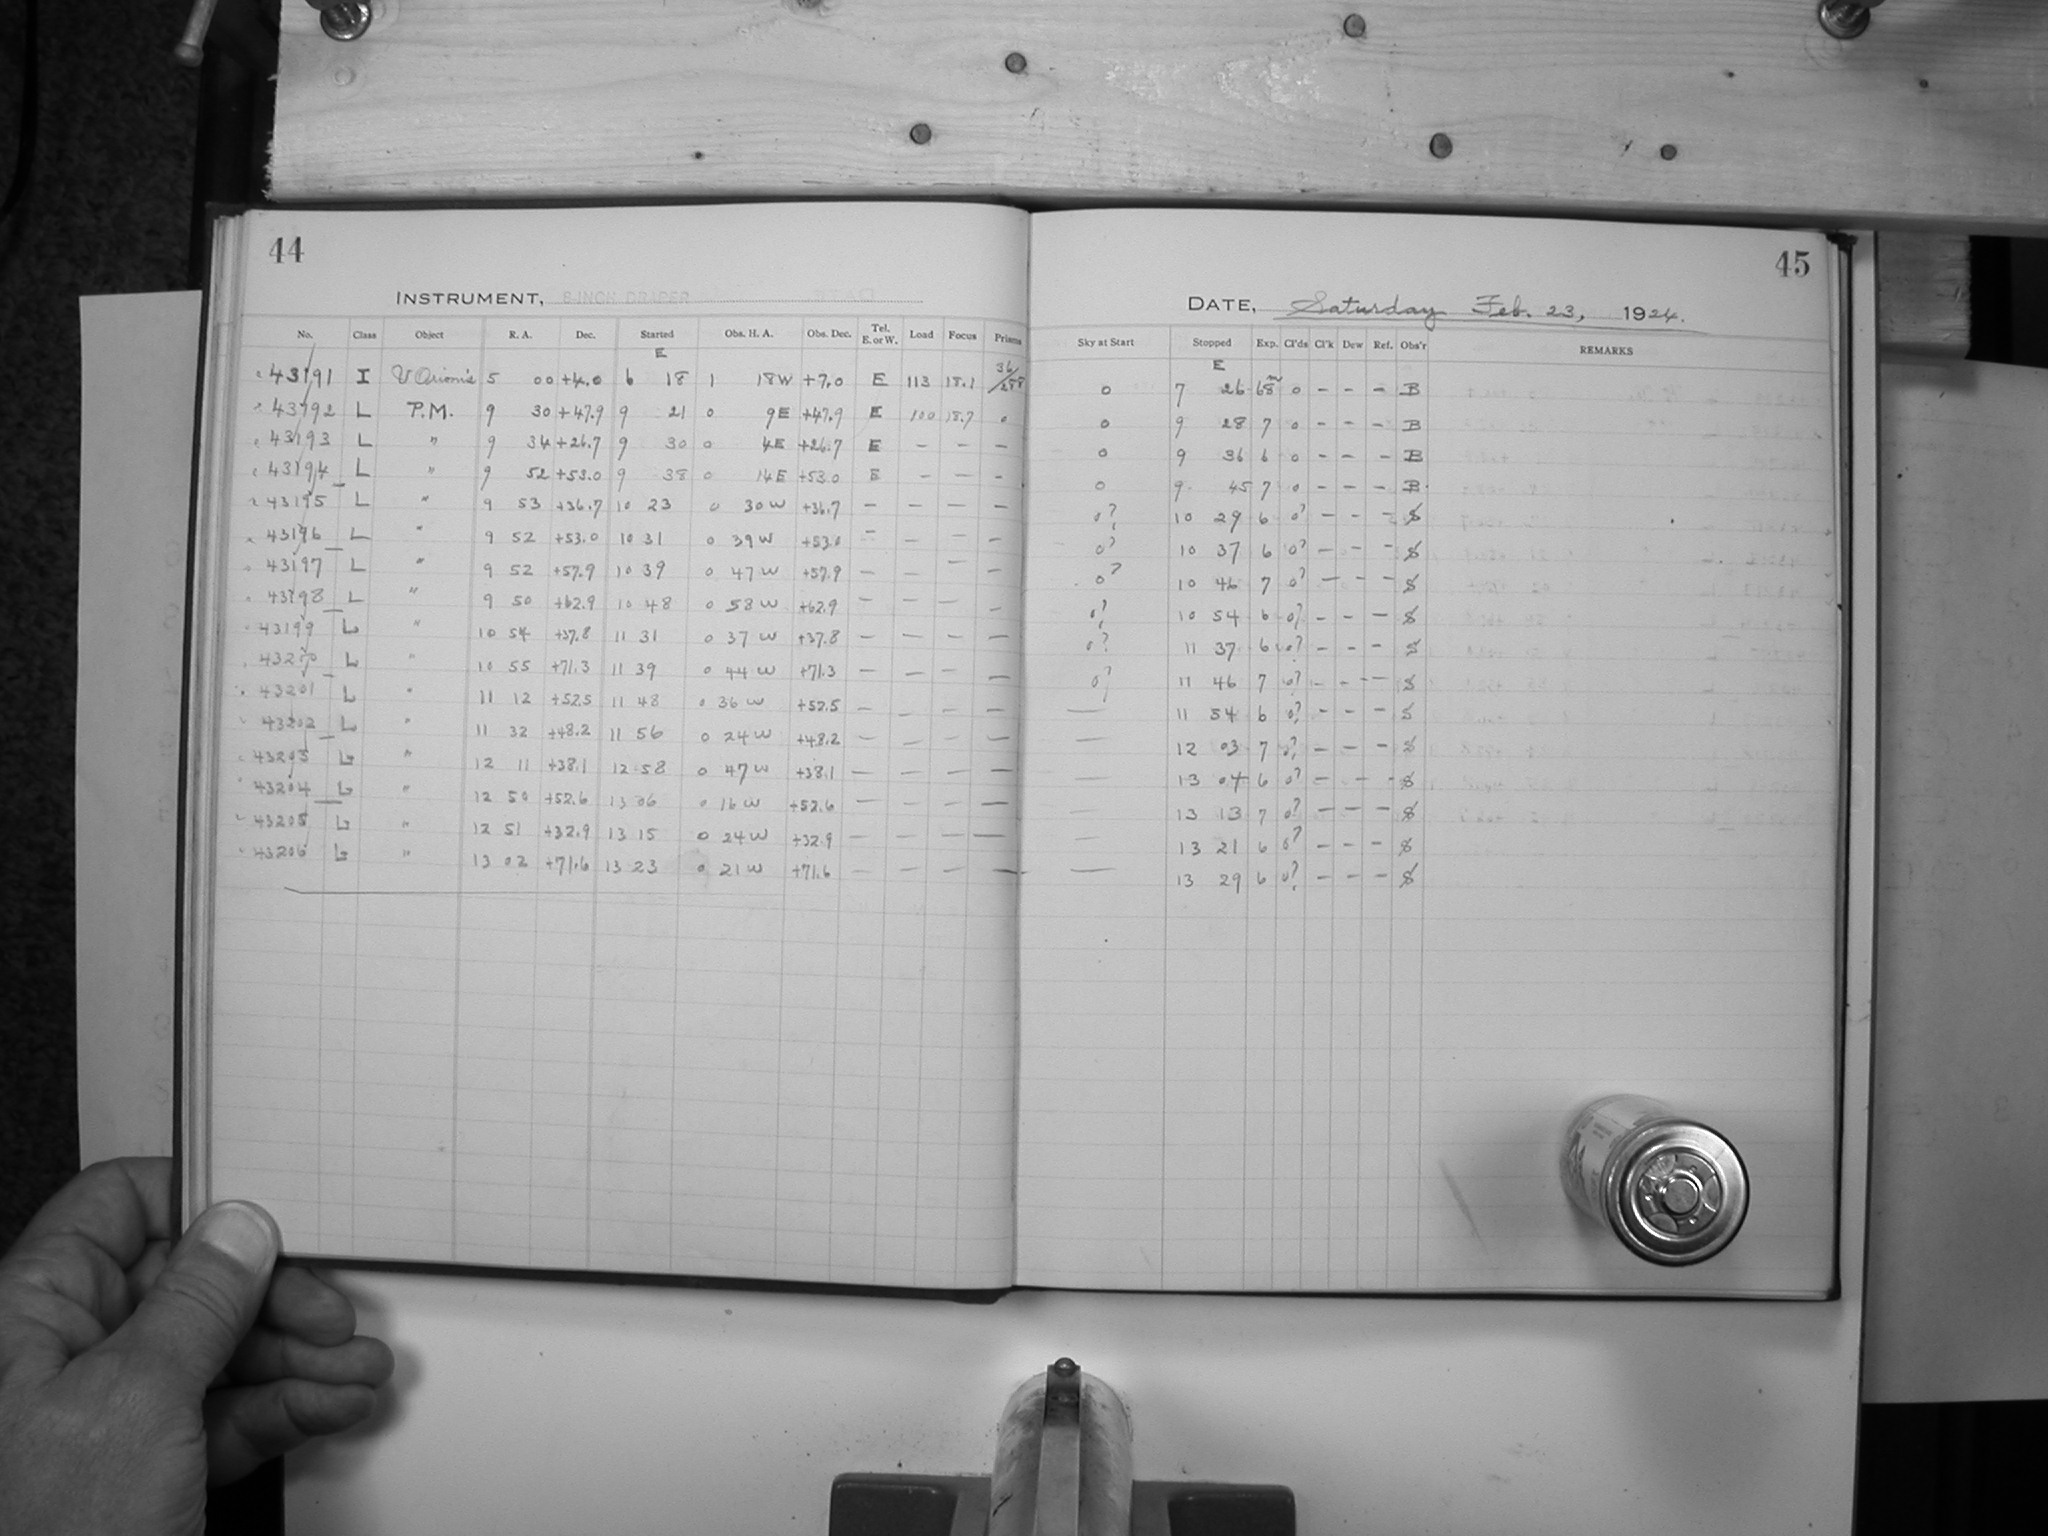 44
INSTRUMENT, 8-INCH DRAPER
No. Class Object R. A. Dec. Started Obs. H. A. Obs. Dec. Tel. E. or W. Load Focus Prisms
E
43191 I V Orionis 5 00 +4.0 6 18 1 18 W +7.0 E 113 18.1 36/288
43192 L P.M. 9 30 +47.9 9 21 0 9 E +47.9 E 100 18.7 0
43193 L " 9 34 +26.7 9 30 0 4 E +26.7 E – – –
43194 L " 9 52 +53.0 9 38 0 14 E +53.0 E – – –
43195 L " 9 53 +36.7 10 23 0 30 W +36.7 – – – –
43196 L " 9 52 +53.0 10 31 0 39 W +53.0 – – – –
43197 L " 9 52 +57.9 10 39 0 47 W +57.9 – – – –
43198 L " 9 50 +62.9 10 48 0 58 W +62.9 – – – –
43199 L " 10 54 +37.8 11 31 0 37 W +37.8 – – – –
43200 L " 10 55 +71.3 11 39 0 44 W +71.3 – – – –
43201 L " 11 12 +52.5 11 48 0 36 W +52.5 – – – –
43202 L " 11 32 +48.2 11 56 0 24 W +48.2 – – – –
43203 L " 12 11 +38.1 12 58 0 47 W +38.1 – – – –
43204 L " 12 50 +52.6 13 06 0 16 W +52.6 – – – –
43205 L " 12 51 +32.9 13 15 0 24 W +32.9 – – – –
43206 L " 13 02 +71.6 13 23 0 21 W +71.6 – – – –
45
DATE, Saturday Feb. 23, 1924.
Sky at Start Stopped Exp. Cl'ds Cl'k Dew Ref. Obs'r REMARKS
E
0 7 26 68m 0 – – – B
0 9 28 7 0 – – – B
0 9 36 6 0 – – – B
0 9 45 7 0 – – – B
0? 10 29 6 0? – – – S
0? 10 37 6 0? – – – S
0? 10 46 7 0? – – – S
0? 10 54 6 0? – – – S
0? 11 37 6 0? – – – S
0? 11 46 7 0? – – – S
— 11 54 6 0? – – – S
— 12 03 7 0? – – – S
— 13 04 6 0? – – – S
— 13 13 7 0? – – – S
— 13 21 6 0? – – – S
— 13 29 6 0? – – – S